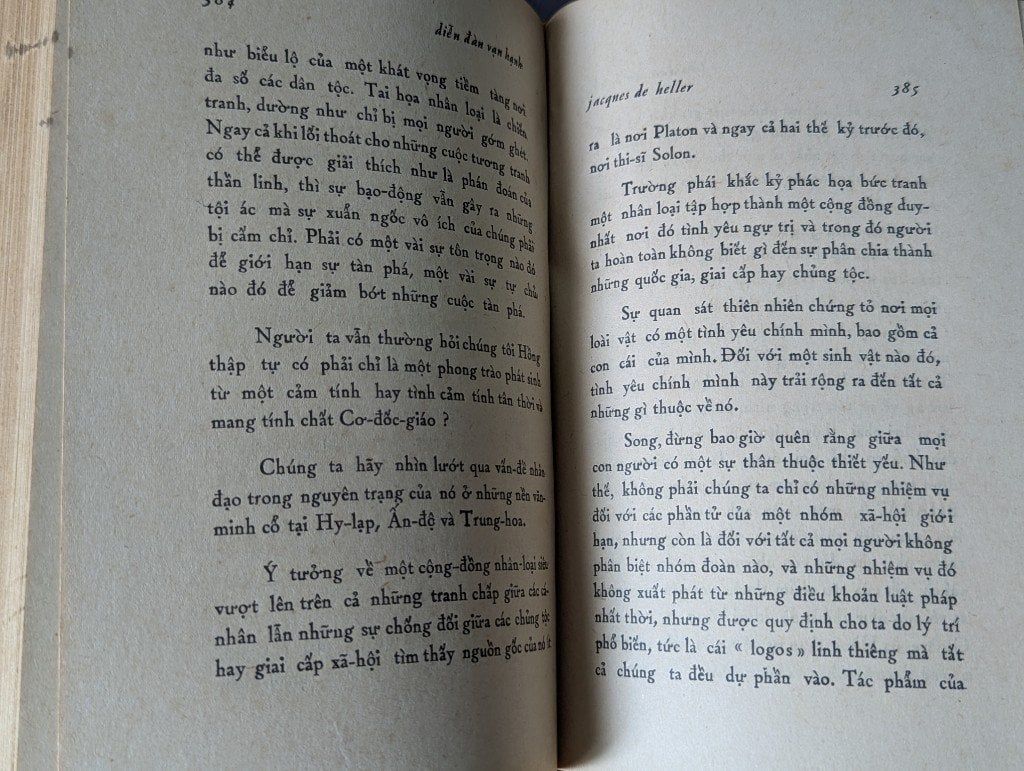 384
diễn đàn vạn hạnh
như biểu lộ của một khát vọng tiềm tàng nơi
đa số các dân tộc. Tai họa nhân loại là chiến
tranh, dường như chỉ bị mọi người gớm ghét.
Ngay cả khi lối thoát cho những cuộc tương tranh
có thể được giải thích như là phán đoán của
thần linh, thì sự bạo-động vẫn gây ra những
tội ác mà sự xuẩn ngốc vô ích của chúng phải
bị cấm chỉ. Phải có một vài sự tôn trọng nào đó
để giới hạn sự tàn phá, một vài sự tự chủ
nào đó để giảm bớt những cuộc tàn phá.
Người ta vẫn thường hỏi chúng tôi Hồng
thập tự có phải chỉ là một phong trào phát sinh
từ một cảm tính hay tình cảm tính tân thời và
mang tính chất Cơ-đốc-giáo ?
Chúng ta hãy nhìn lướt qua vấn-đề nhân
đạo trong nguyên trạng của nó ở những nền văn-
minh cổ tại Hy-lạp, Ấn-độ và Trung-hoa.
Ý tưởng về một cộng-đồng nhân-loại siêu
vượt lên trên cả những tranh chấp giữa các cá-
nhân lẫn những sự chống đối giữa các chủng tộc
hay giai cấp xã-hội tìm thấy nguồn gốc của nó ít
jacques de heller
385
ra là nơi Platon và ngay cả hai thế kỷ trước đó,
nơi thi-sĩ Solon.
Trường phái khắc kỷ phác họa bức tranh
một nhân loại tập hợp thành một cộng đồng duy-
nhất nơi đó tình yêu ngự trị và trong đó người
ta hoàn toàn không biết gì đến sự phân chia thành
những quốc gia, giai cấp hay chủng tộc.
Sự quan sát thiên nhiên chứng tỏ nơi mọi
loài vật có một tình yêu chính mình, bao gồm cả
con cái của mình. Đối với một sinh vật nào đó,
tình yêu chính mình này trải rộng ra đến tất cả
những gì thuộc về nó.
Song, đừng bao giờ quên rằng giữa mọi
con người có một sự thân thuộc thiết yếu. Như
thế, không phải chúng ta chỉ có những nhiệm vụ
đối với các phần tử của một nhóm xã-hội giới
hạn, nhưng còn là đối với tất cả mọi người không
phân biệt nhóm đoàn nào, và những nhiệm vụ đó
không xuất phát từ những điều khoản luật pháp
nhất thời, nhưng được quy định cho ta do lý trí
phổ biến, tức là cái « logos » linh thiêng mà tất
cả chúng ta đều dự phần vào. Tác phẩm của